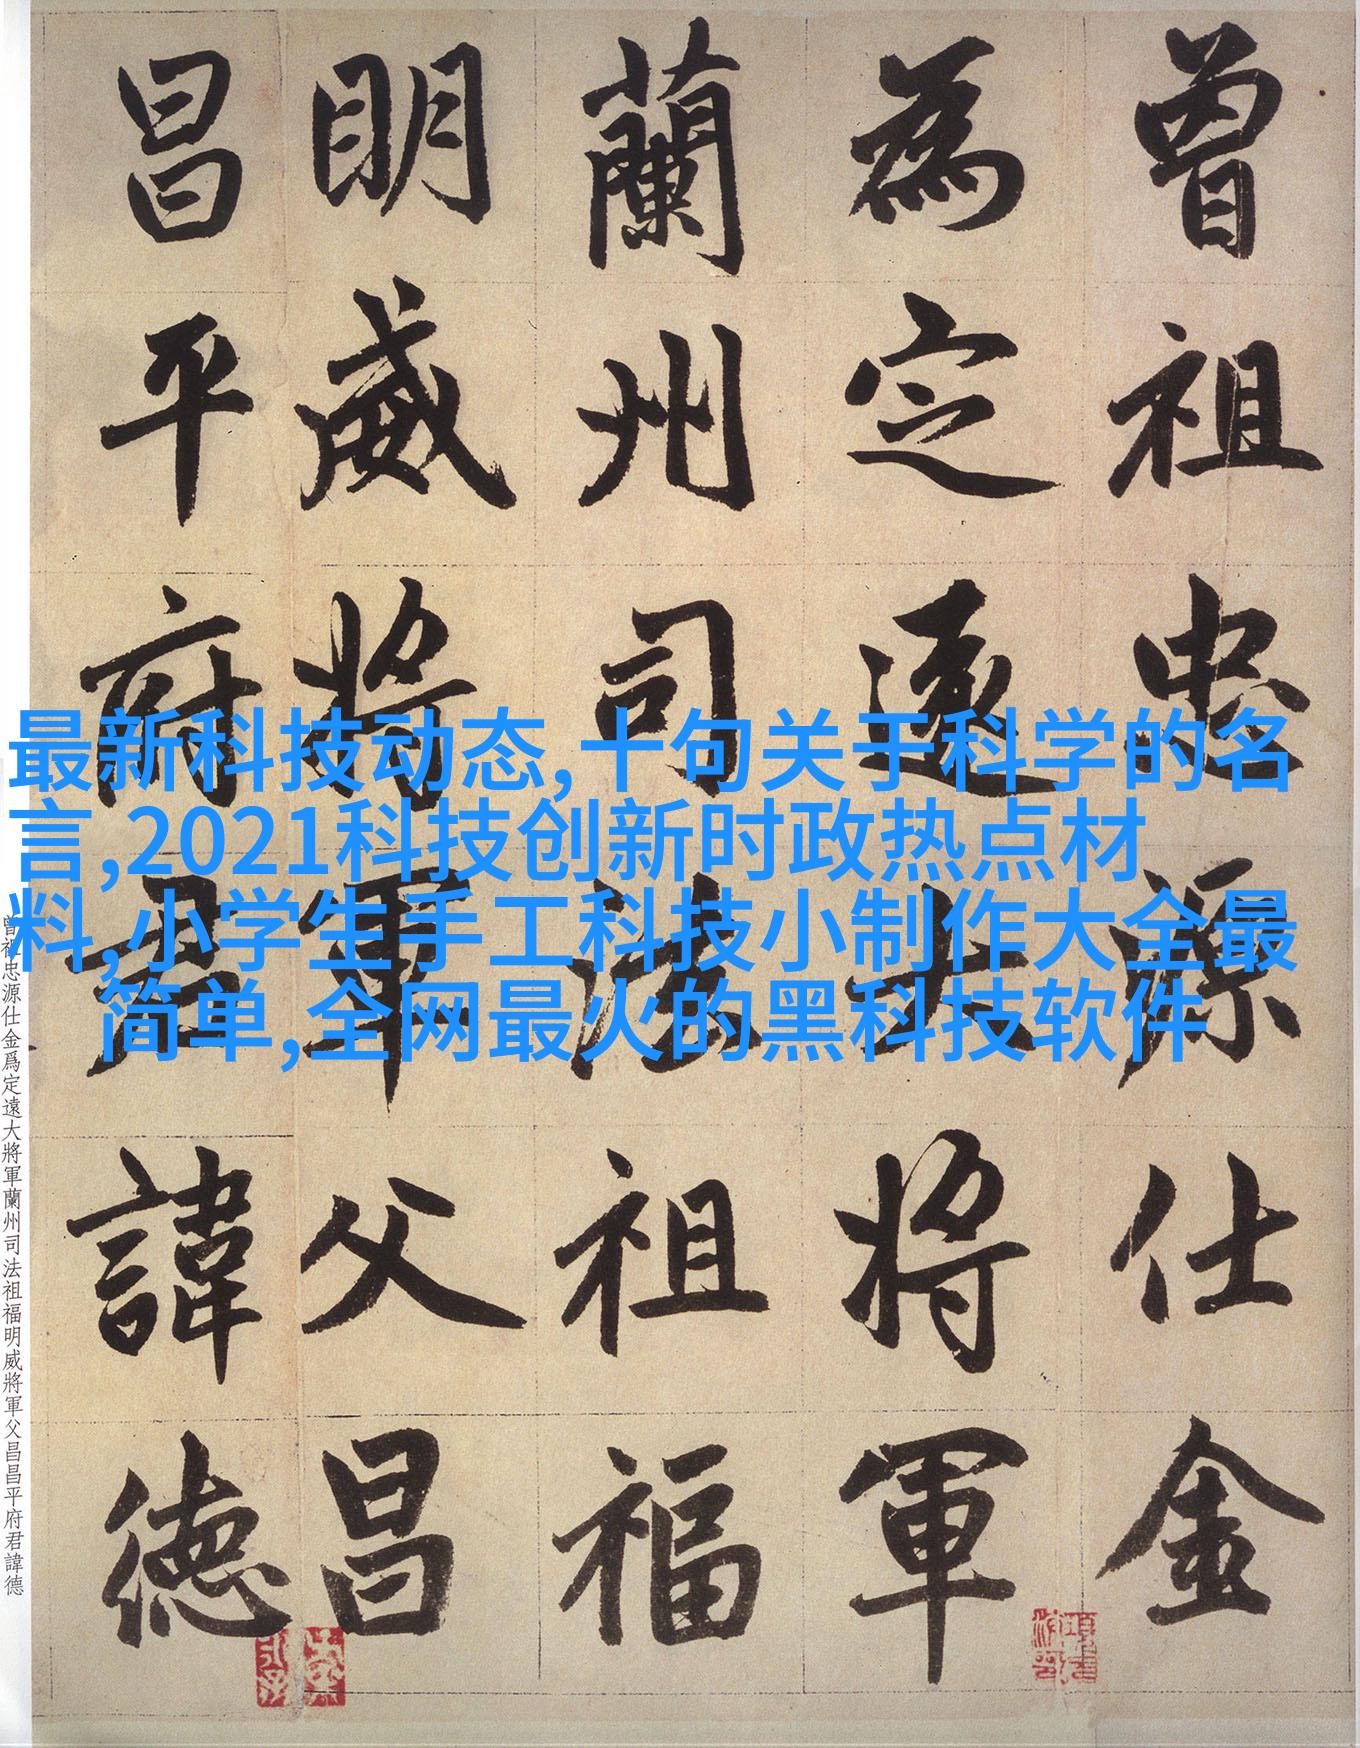 曾祖忠源仕金
為定遠大将軍
蘭州司法祖福
明威将軍父昌
昌平府君諱德
最新科技动态,十句关于科学的名
言,2021科技创新时政热点材
料,小学生手工科技小制作大全最
简单,全网最火的黑科技软件
曾祖忠源仕金爲定遠大將軍蘭州司法祖福明威將軍父昌昌平府君諱德